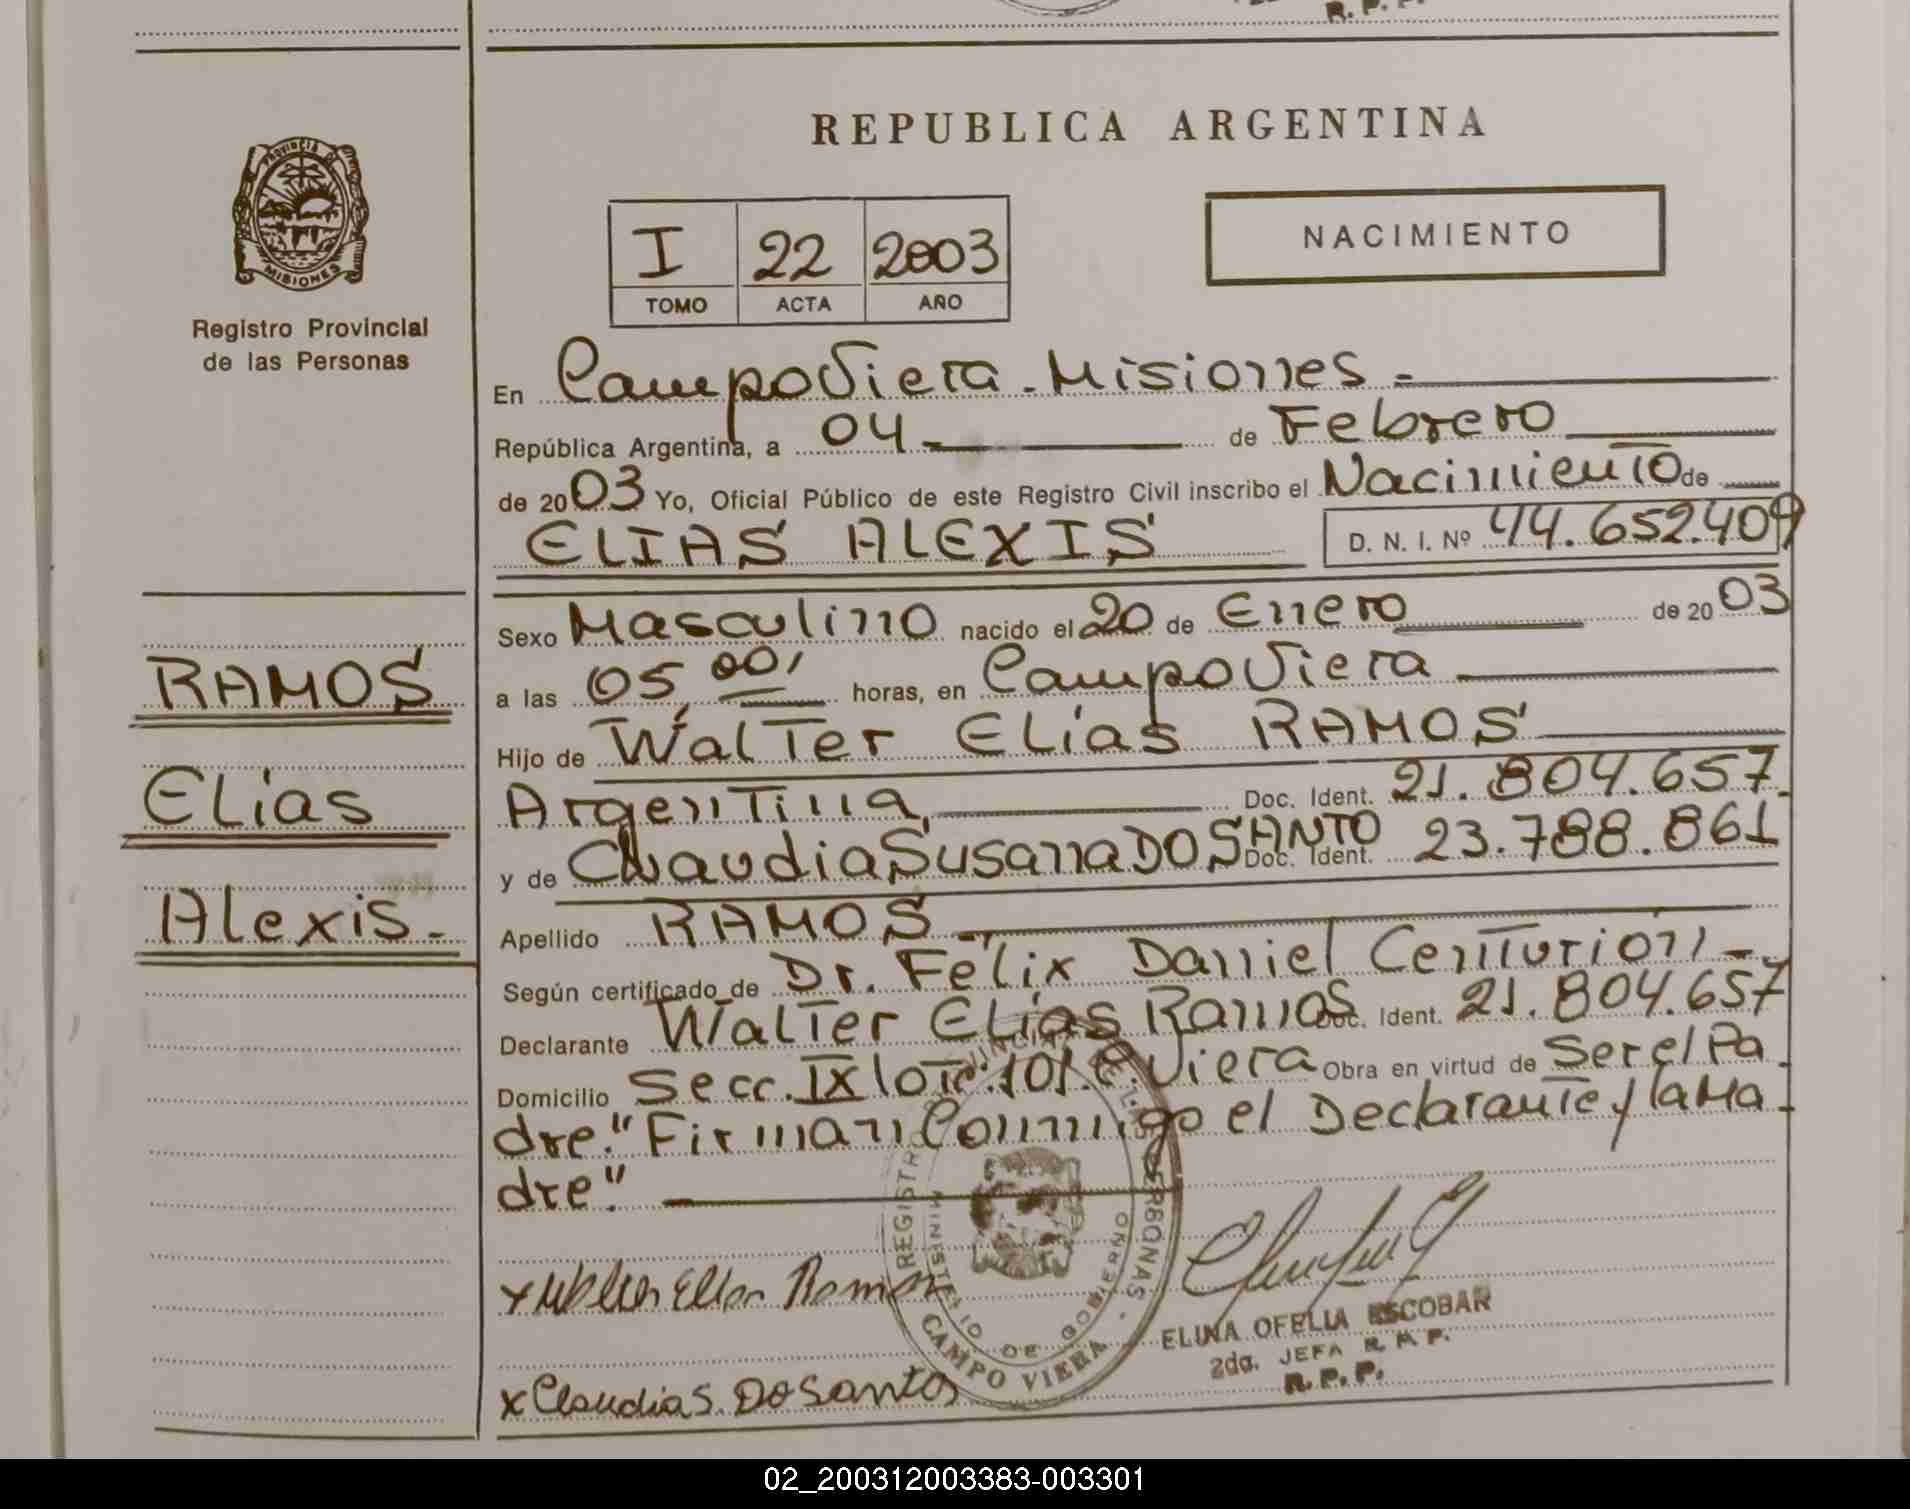 R. P. P.
PROVINCIA DE
MISIONES
Registro Provincial
de las Personas
RAMOS
Elías
Alexis.-
REPUBLICA ARGENTINA
I 22 2003
TOMO ACTA AÑO
NACIMIENTO
En Campo Viera - Misiones -
República Argentina, a 04- de Febrero
de 2003 Yo, Oficial Público de este Registro Civil inscribo el Nacimiento de
ELIAS ALEXIS D. N. I. Nº 44.652.409
Sexo Masculino nacido el 20 de Enero de 2003
a las 05,00, horas, en Campo Viera
Hijo de Walter Elías RAMOS
Argentina Doc. Ident. 21.804.657.
y de Claudia Susana DO SANTO Doc. Ident. 23.788.861
Apellido RAMOS -
Según certificado de Dr. Félix Daniel Centurión -
Declarante Walter Elías Ramos Doc. Ident. 21.804.657
Domicilio Secc. IX lote: 101. C. Viera Obra en virtud de Ser el Pa-
dre." Firman Conmigo el Declarante y la Ma-
dre."
x Walter Elias Ramos
x Claudia S. Do Santos
REGISTRO PROVINCIAL DE LAS PERSONAS - CAMPO VIERA -
MINISTERIO DE GOBIERNO
ELINA OFELIA ESCOBAR
2da. JEFA R. P. P.
R. P. P.
02_200312003383-003301